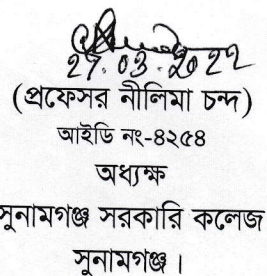 27.03.2022
(প্রফেসর নীলিমা চন্দ)
আইডি নং-৪২৫৪
অধ্যক্ষ
সুনামগঞ্জ সরকারি কলেজ
সুনামগঞ্জ।